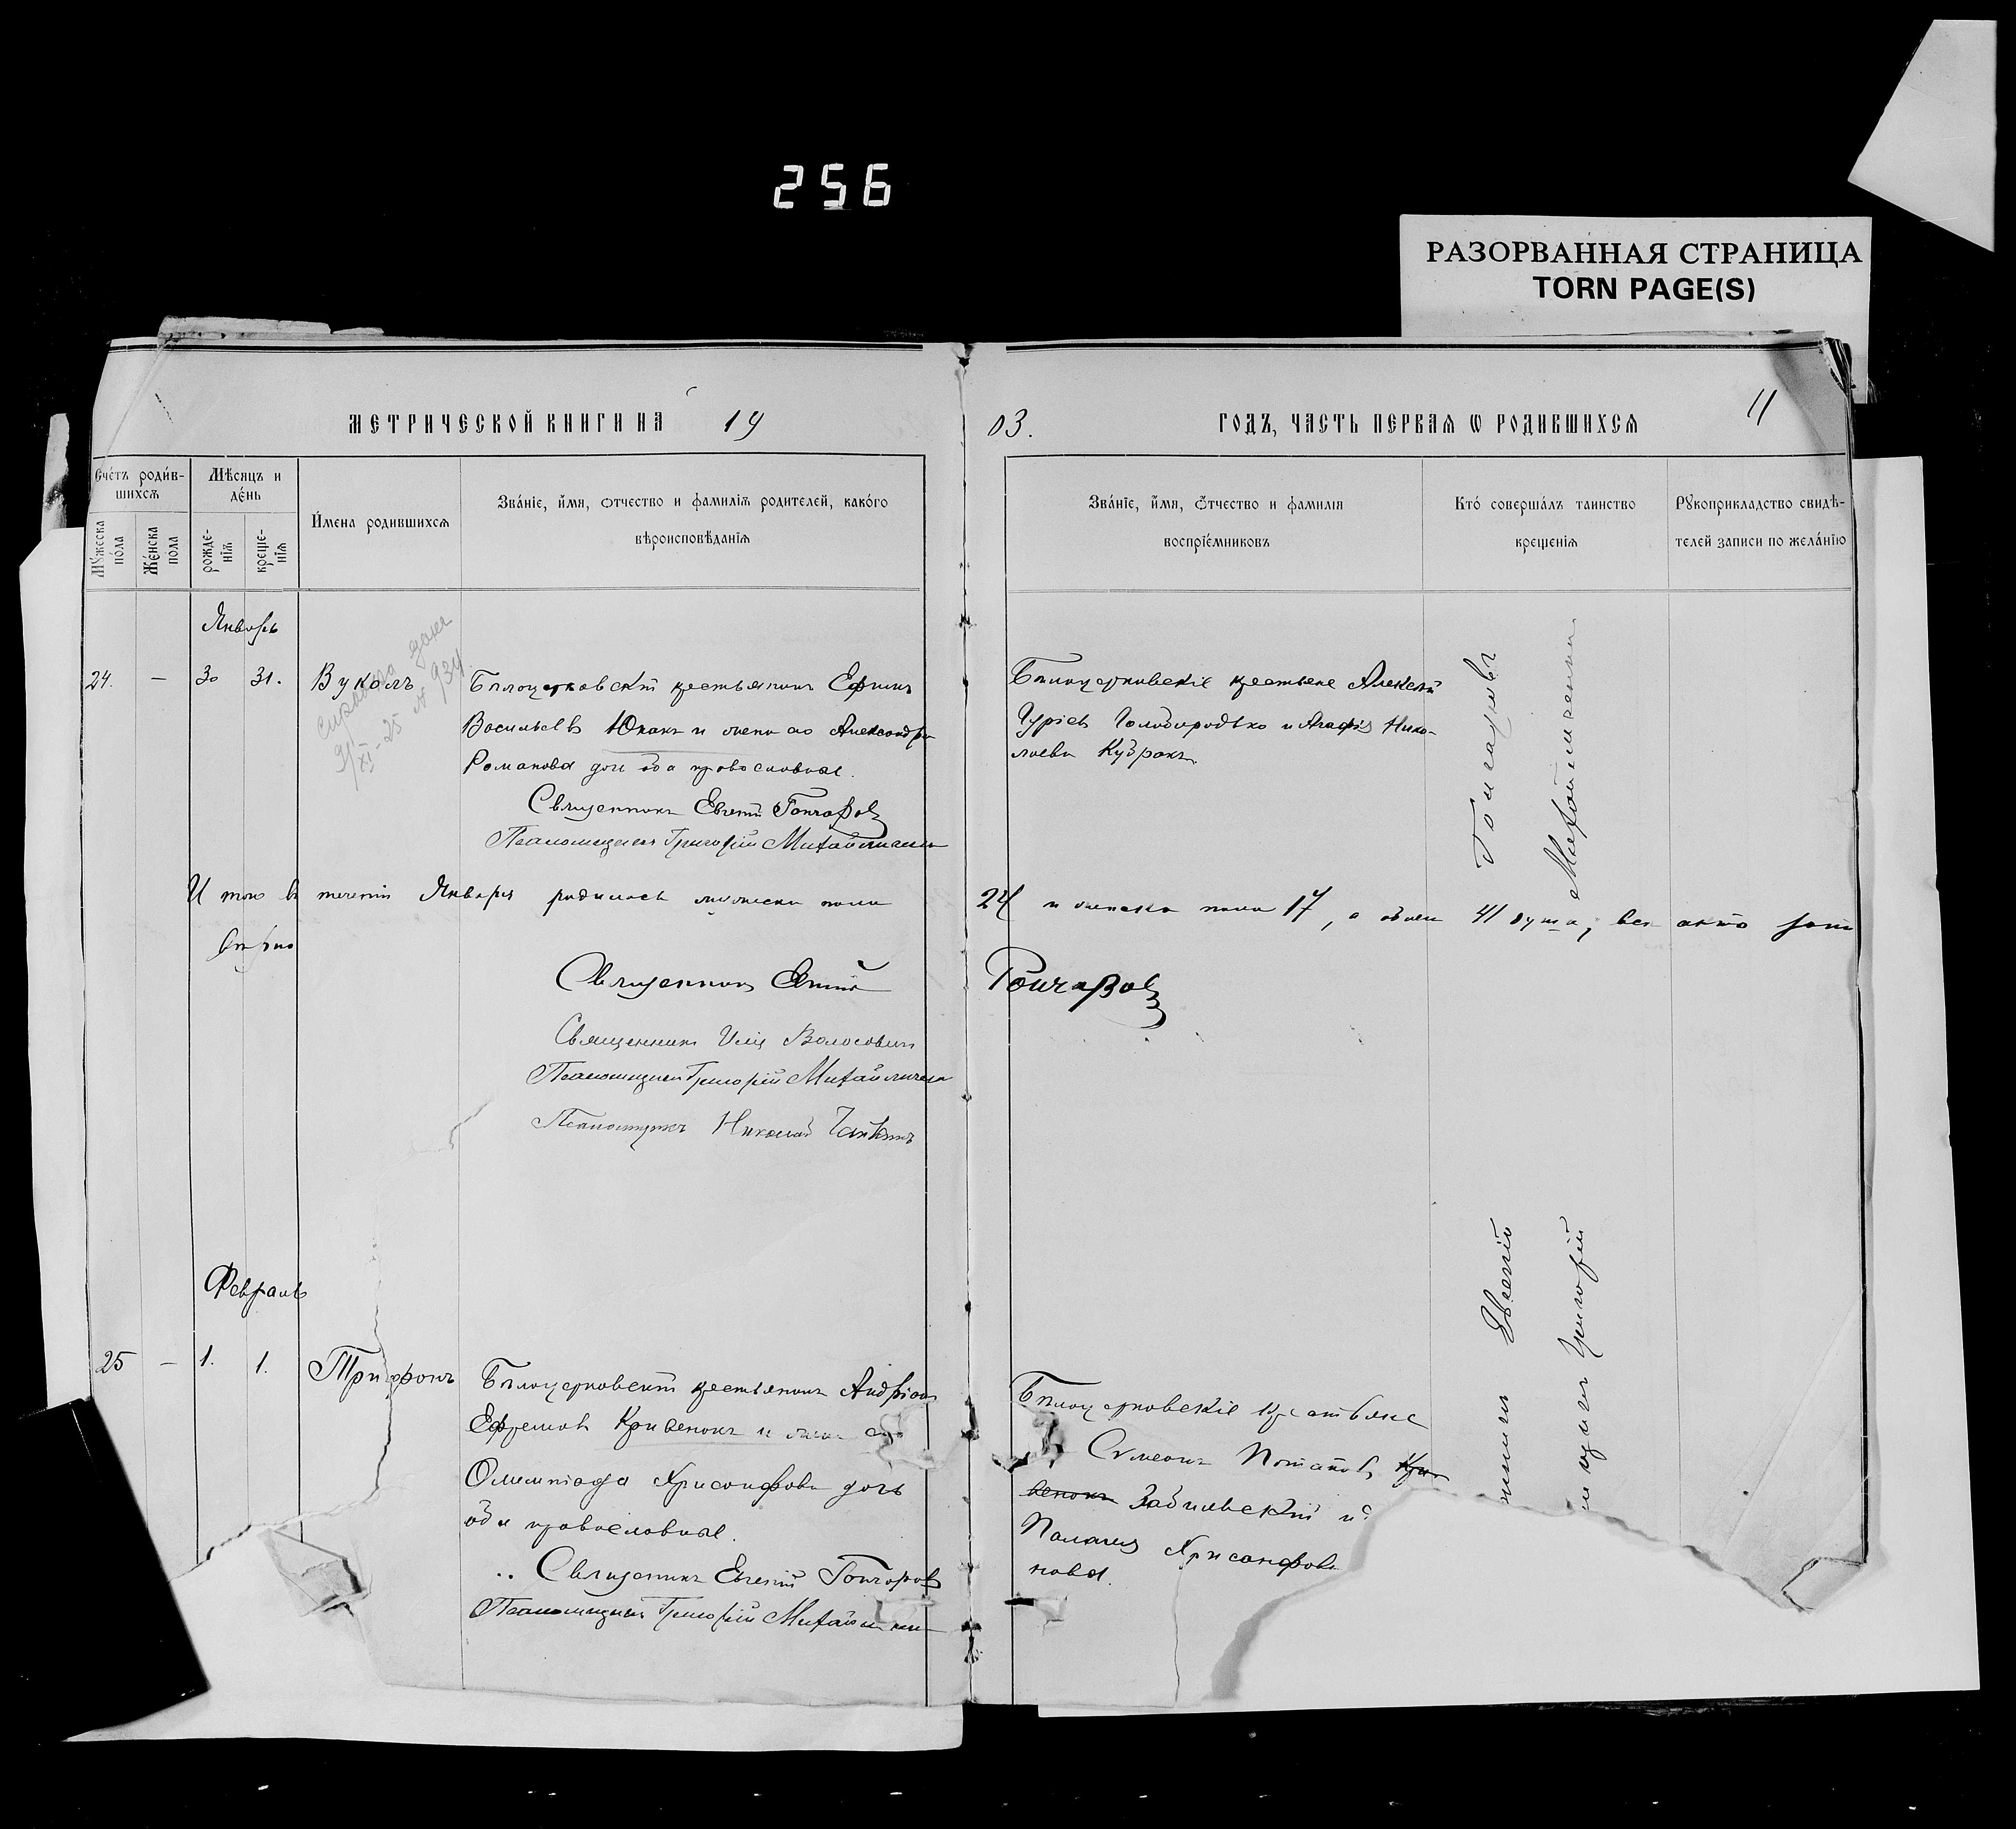 256
РАЗОРВАННАЯ СТРАНИЦА
TORN PAGE(S)
МЕТРИЧЕСКОЙ КНИГИ НА 19
03. ГОДЪ, ЧАСТЬ ПЕРВАЯ Ѡ РОДИВШИХСѦ
11
Счéтъ роди́в-
шихсѧ
Мѣсяцъ и
дéнь
Мꙋжеска
пóла
Жéнска
пóла
рожде-
нїѧ
креще-
нїѧ
И҆мена родившихсѧ
Звáнїе, и҆́мя, ѻтчество и фамилїѧ родителей, какóго
вѣроисповѣданїѧ
Звáнїе, и҆́мя, ѻтчество и фамилїя
воспрїéмниковъ
Ктó совершáлъ таинство
крещенїѧ
Рꙋкоприкладство свидѣ-
телей записи по желáнїю
Январь
24. — 30 31. Вуколъ
Бѣлоцерковскій крестьянинъ Ефимъ
Васильевъ Юнакъ и жена его Александра
Романова дочь оба православные.
Священникъ Евгеній Гончаровъ
Псаломщикъ Григорій Михайличенко
Бѣлоцерковскіе крестьяне Алексѣй
Гуріевъ Голобородько и Агафія Нико-
лаева Кудракъ.
Гончаровъ
Михайличенко.
Итого въ теченіи Января родилось мужеска пола
24 и женска пола 17, а обоего 41 душа;
вѣрно
Священникъ Евгеній
Гончаровъ
Священникъ Илія Волосовичъ
Псаломщикъ Григорій Михайличенко
Псаломщикъ Николай
Февраль
25 — 1. 1. Трифонъ
Бѣлоцерковскій крестьянинъ Андріанъ
Ефремовъ Кривенокъ и жена его
Олимпіада Хрисанфова дочь
оба православные.
Священникъ Евгеній Гончаровъ
Псаломщикъ Григорій Михайличенко
Бѣлоцерковскіе крестьяне
Сѵмеонъ Потаповъ Кри-
венокъ Забіевскій и
Палагія Хрисанфова
нова.
Евгеній
Григорій